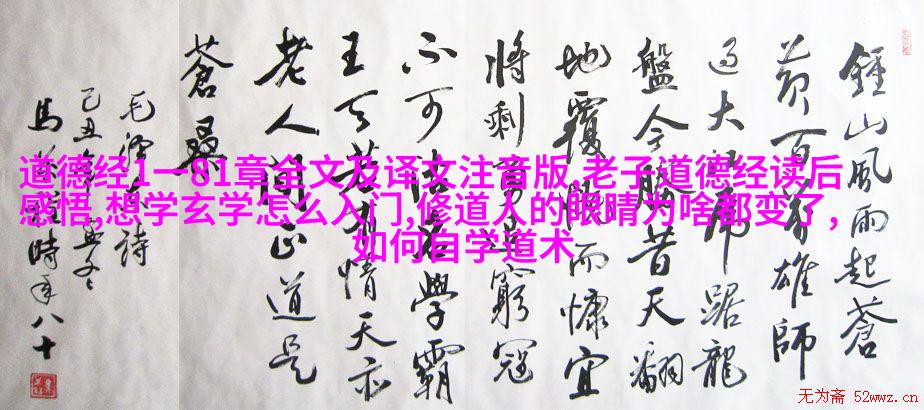 道德经1一81章全文及译文注音版,老子道德经读后
感悟,想学玄学怎么入门,修道人的眼睛为啥都变了,
如何自学道术
鍾山風雨起蒼
黄百万雄師
过大江虎踞龍
盤今勝昔天翻
地覆而慷宜
将剩勇追窮寇
不可沽名學霸
王天若有情天亦
老人間正道是
蒼桑
毛泽东詩
己丑年冬
馬時年八十
无为斋 52wwz.cn